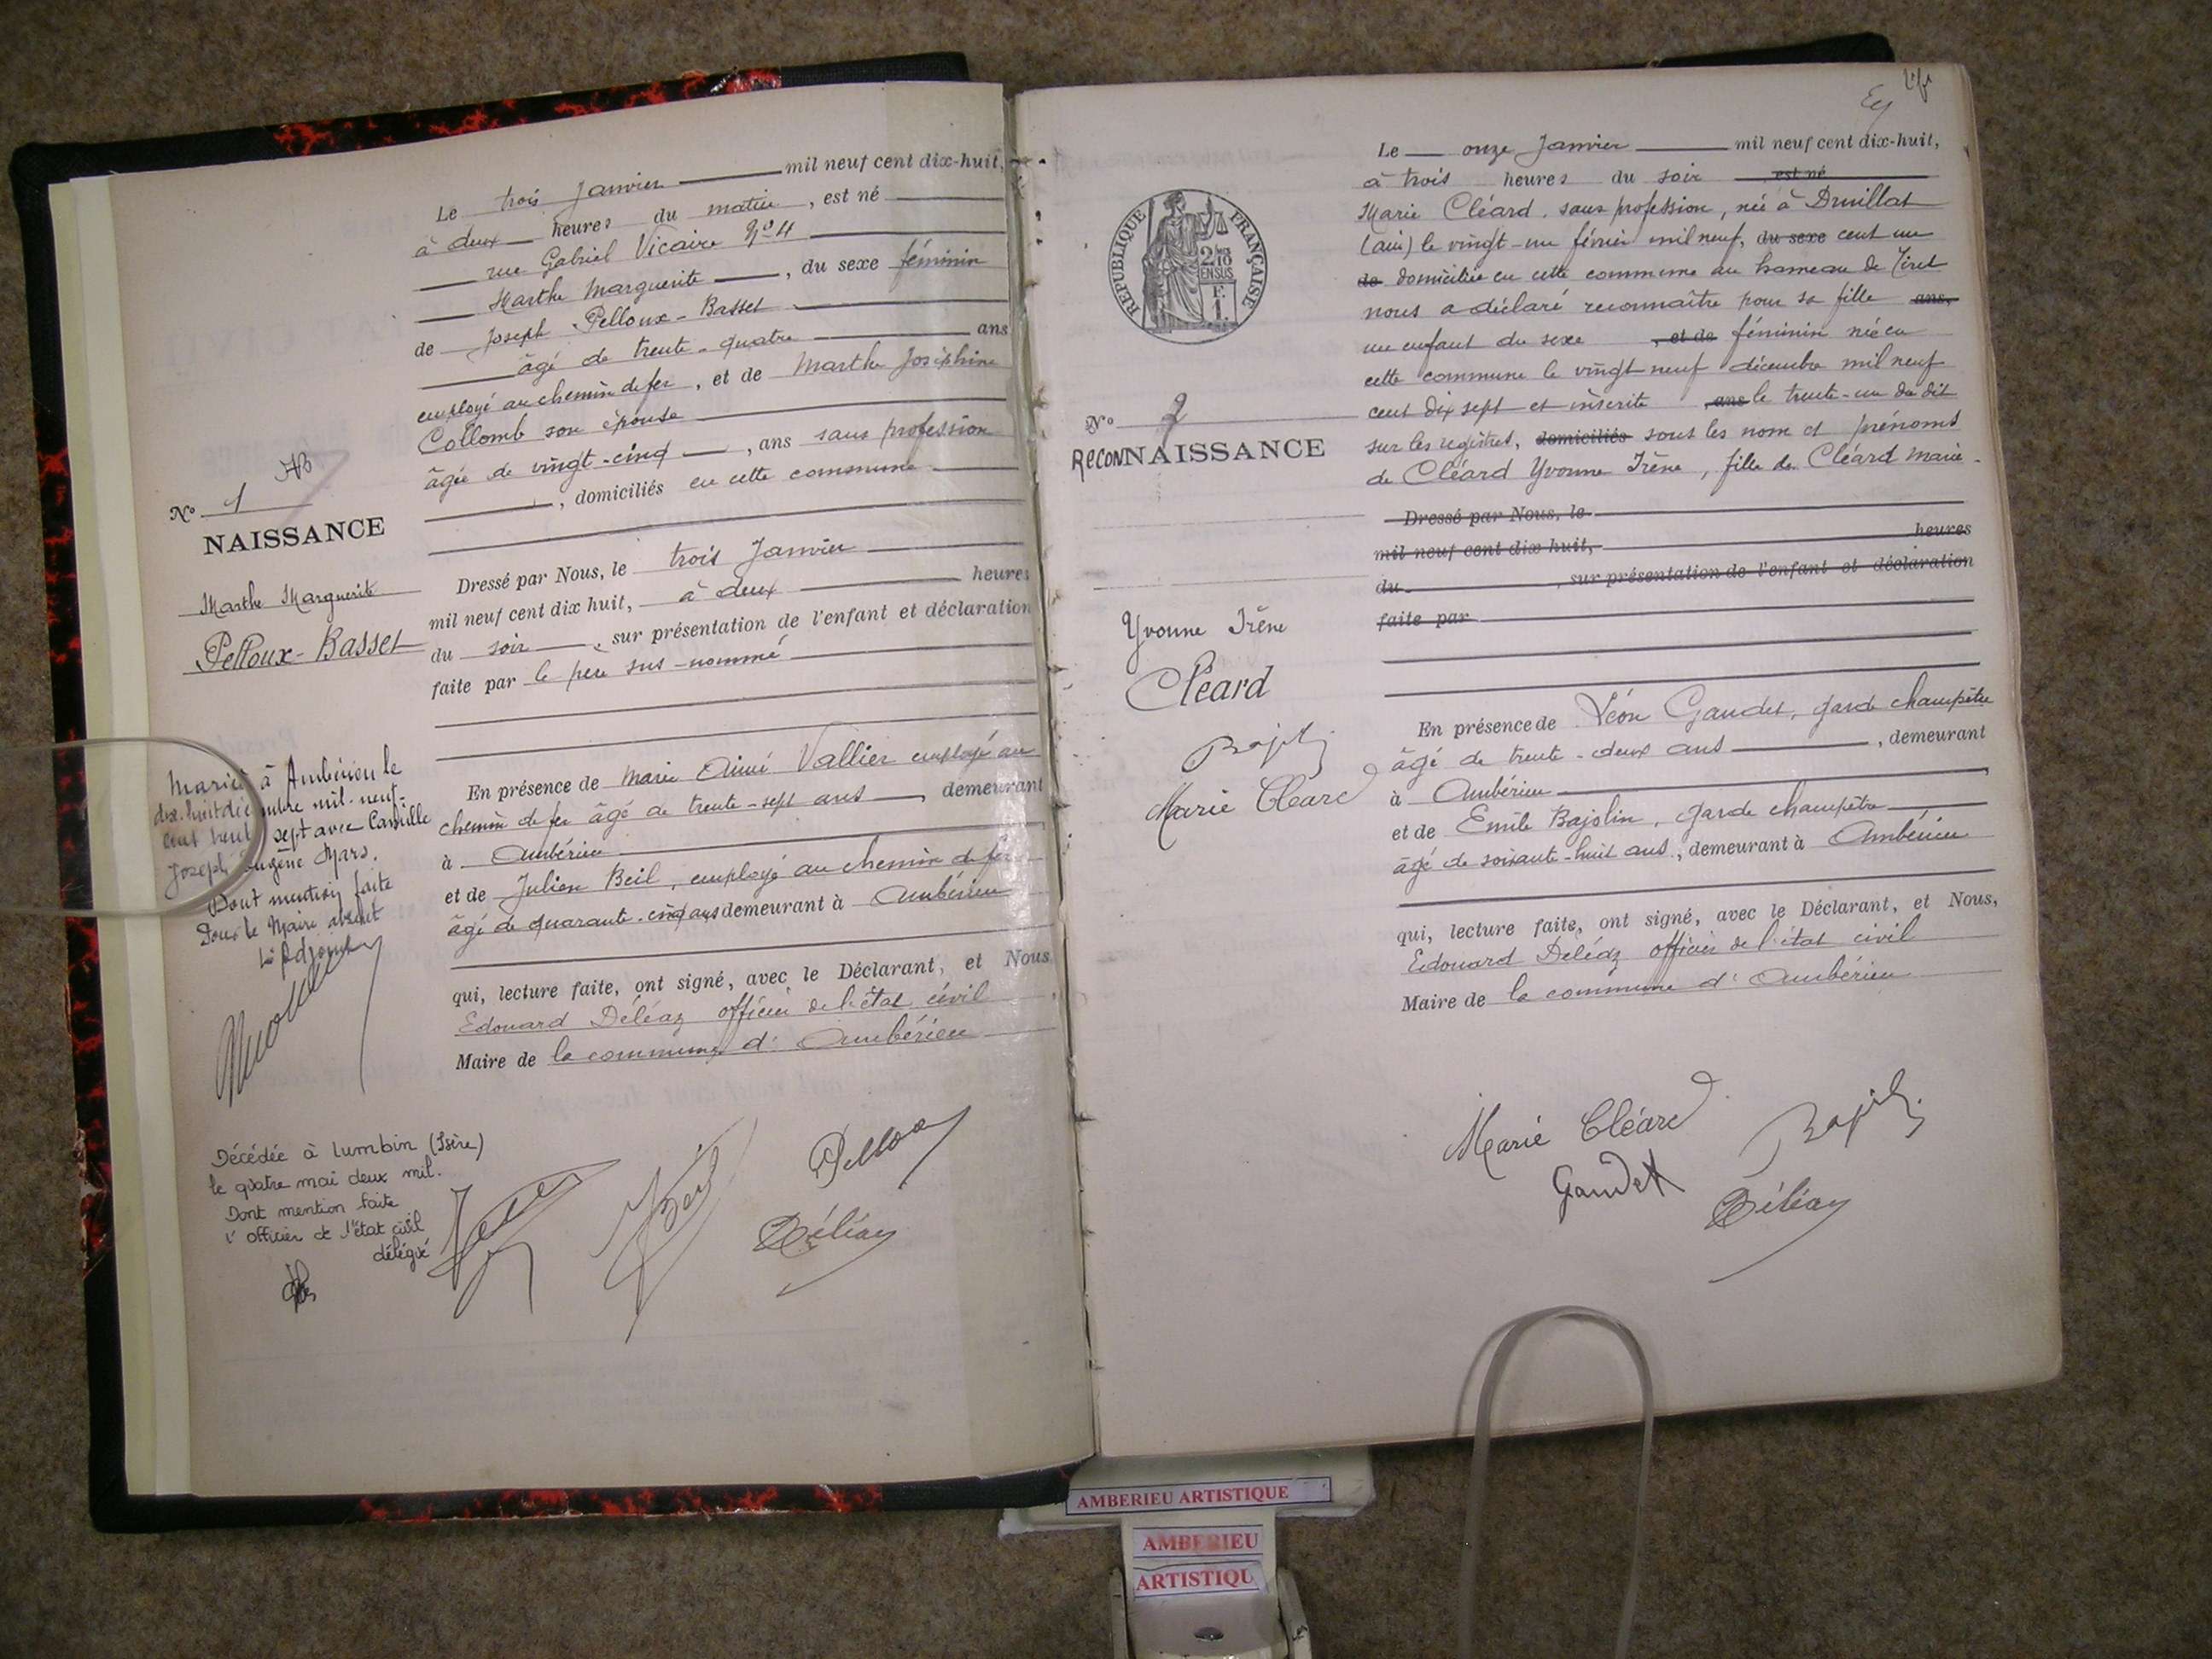 Le trois Janvier mil neuf cent dix-huit,
à deux heures du matin, est né
rue Gabriel Vicaire N° 4
Marthe Marguerite, du sexe féminin
de Joseph Pelloux-Basset
âgé de trente-quatre ans
employé au chemin de fer, et de Marthe Joséphine
Collomb son épouse
âgée de vingt-cinq, ans sans profession
, domiciliés en cette commune
N° 1
NAISSANCE
Marthe Marguerite
Pelloux-Basset
Dressé par Nous, le trois Janvier
mil neuf cent dix huit, à deux heures
du soir, sur présentation de l'enfant et déclaration
faite par le père sus-nommé
Mariée à Ambérieu le
dix-huit décembre mil-neuf-
cent trente sept avec Camille
Joseph Eugène Mars.
Dont mention faite
Pour le Maire absent
L'Adjoint
En présence de Marie Aimé Vallier employé au
chemin de fer âgé de trente-sept ans, demeurant
à Ambérieu
et de Julien Beil, employé au chemin de fer
âgé de quarante-cinq ans demeurant à Ambérieu
qui, lecture faite, ont signé, avec le Déclarant, et Nous
Edouard Déléaz officier de l'état civil
Maire de la commune d'Ambérieu
Décédée à Lumbin (Isère)
le quatre mai deux mil.
Dont mention faite
l'officier de l'état civil
délégué
Beil
Pelloux
Déléaz
Le onze Janvier mil neuf cent dix-huit,
à trois heures du soir est né
Marie Cléard, sans profession, née à Druillat
(ain) le vingt-un février mil neuf, du sexe cent un
de domiciliée en cette commune au hameau de Tiret
nous a déclaré reconnaître pour sa fille ans,
un enfant du sexe , et de féminin née en
cette commune le vingt neuf décembre mil neuf
cent dix sept et inscrite , ans le trente-un du dit
sur les registres, domiciliés sous les nom et prénoms
de Cléard Yvonne Irène, fille de Cléard Marie.
RÉPUBLIQUE FRANÇAISE
2/10 EN SUS
N° 2
RECONNAISSANCE
Yvonne Irène
Cléard
Marie Cléard
Dressé par Nous, le
mil neuf cent dix huit, heures
du , sur présentation de l'enfant et déclaration
faite par
En présence de Léon Gaudet, garde champêtre
âgé de trente-deux ans, demeurant
à Ambérieu
et de Emile Bajolin, garde champêtre
âgé de soixante-huit ans, demeurant à Ambérieu
qui, lecture faite, ont signé, avec le Déclarant, et Nous,
Edouard Déléaz officier de l'état civil
Maire de la commune d'Ambérieu
Marie Cléard
Gaudet
Déléaz
AMBERIEU ARTISTIQUE
AMBERIEU
ARTISTIQU